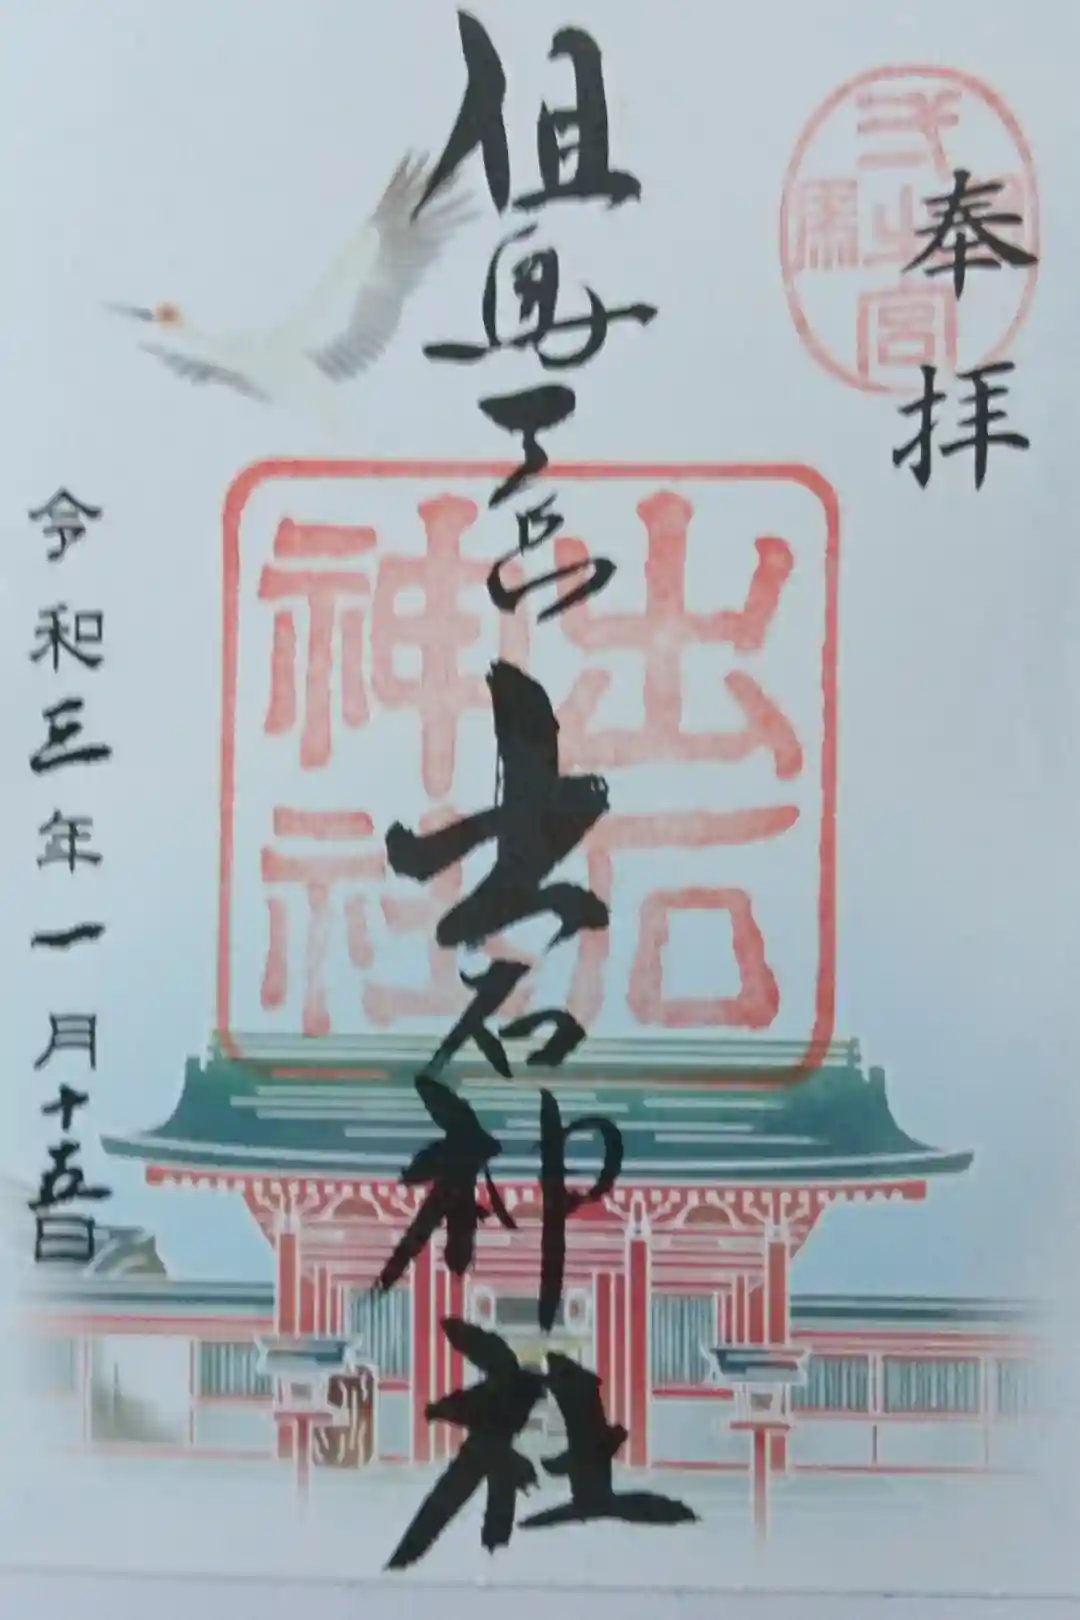 奉拝
弌之宮
馬
但馬
出石神社
出石
神社
令和三年一月十五日